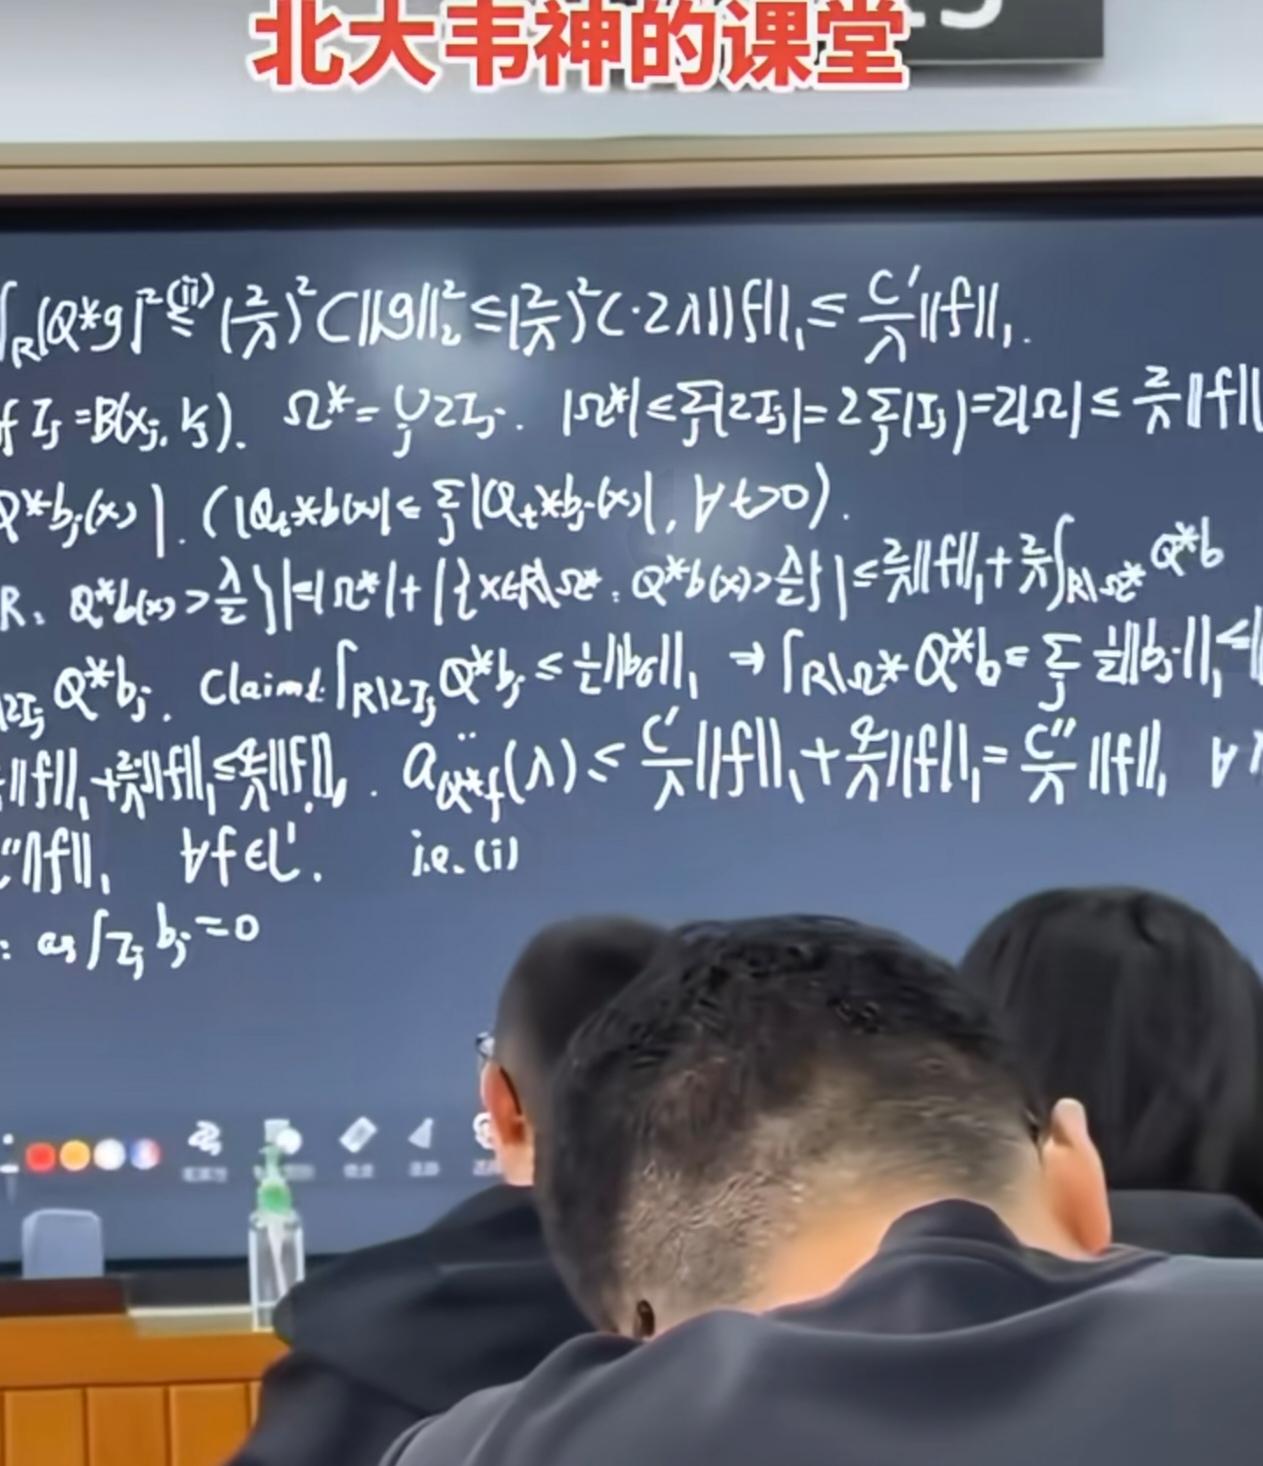 北大韦神的课堂
∫_R |Q*g|² ≤^(ii) (2/λ)² C||g||₂² ≤ (2/λ)² C·2λ||f||₁ ≤ C'/λ ||f||₁.
f I_j = B(x_j, r_j). Ω* = ∪_j 2I_j. |Ω*| ≤ Σ_j |2I_j| = 2Σ_j |I_j| = 2|Ω| ≤ 2/λ ||f||
Q*b_j(x)|. (|Q_t*b(x)| ≤ Σ_j |Q_t*b_j(x)|, ∀t>0).
R: Q*b(x) > λ/2}| = |Ω*| + |{x∈R\Ω*: Q*b(x) > λ/2}| ≤ 2/λ ||f||₁ + 2/λ ∫_{R\Ω*} Q*b
\2I_j Q*b_j. Claim1: ∫_{R\2I_j} Q*b_j ≤ 1/2 ||b_j||₁ → ∫_{R\Ω*} Q*b ≤ Σ_j 1/2 ||b_j||₁ ≤
||f||₁ + 2/λ ||f||₁ ≤ 4/λ ||f||₁. a_{Q*f}(λ) ≤ C'/λ ||f||₁ + 4/λ ||f||₁ = C''/λ ||f||₁ ∀
''||f||₁ ∀f∈L¹. i.e. (i)
: as ∫_{I_j} b_j = 0